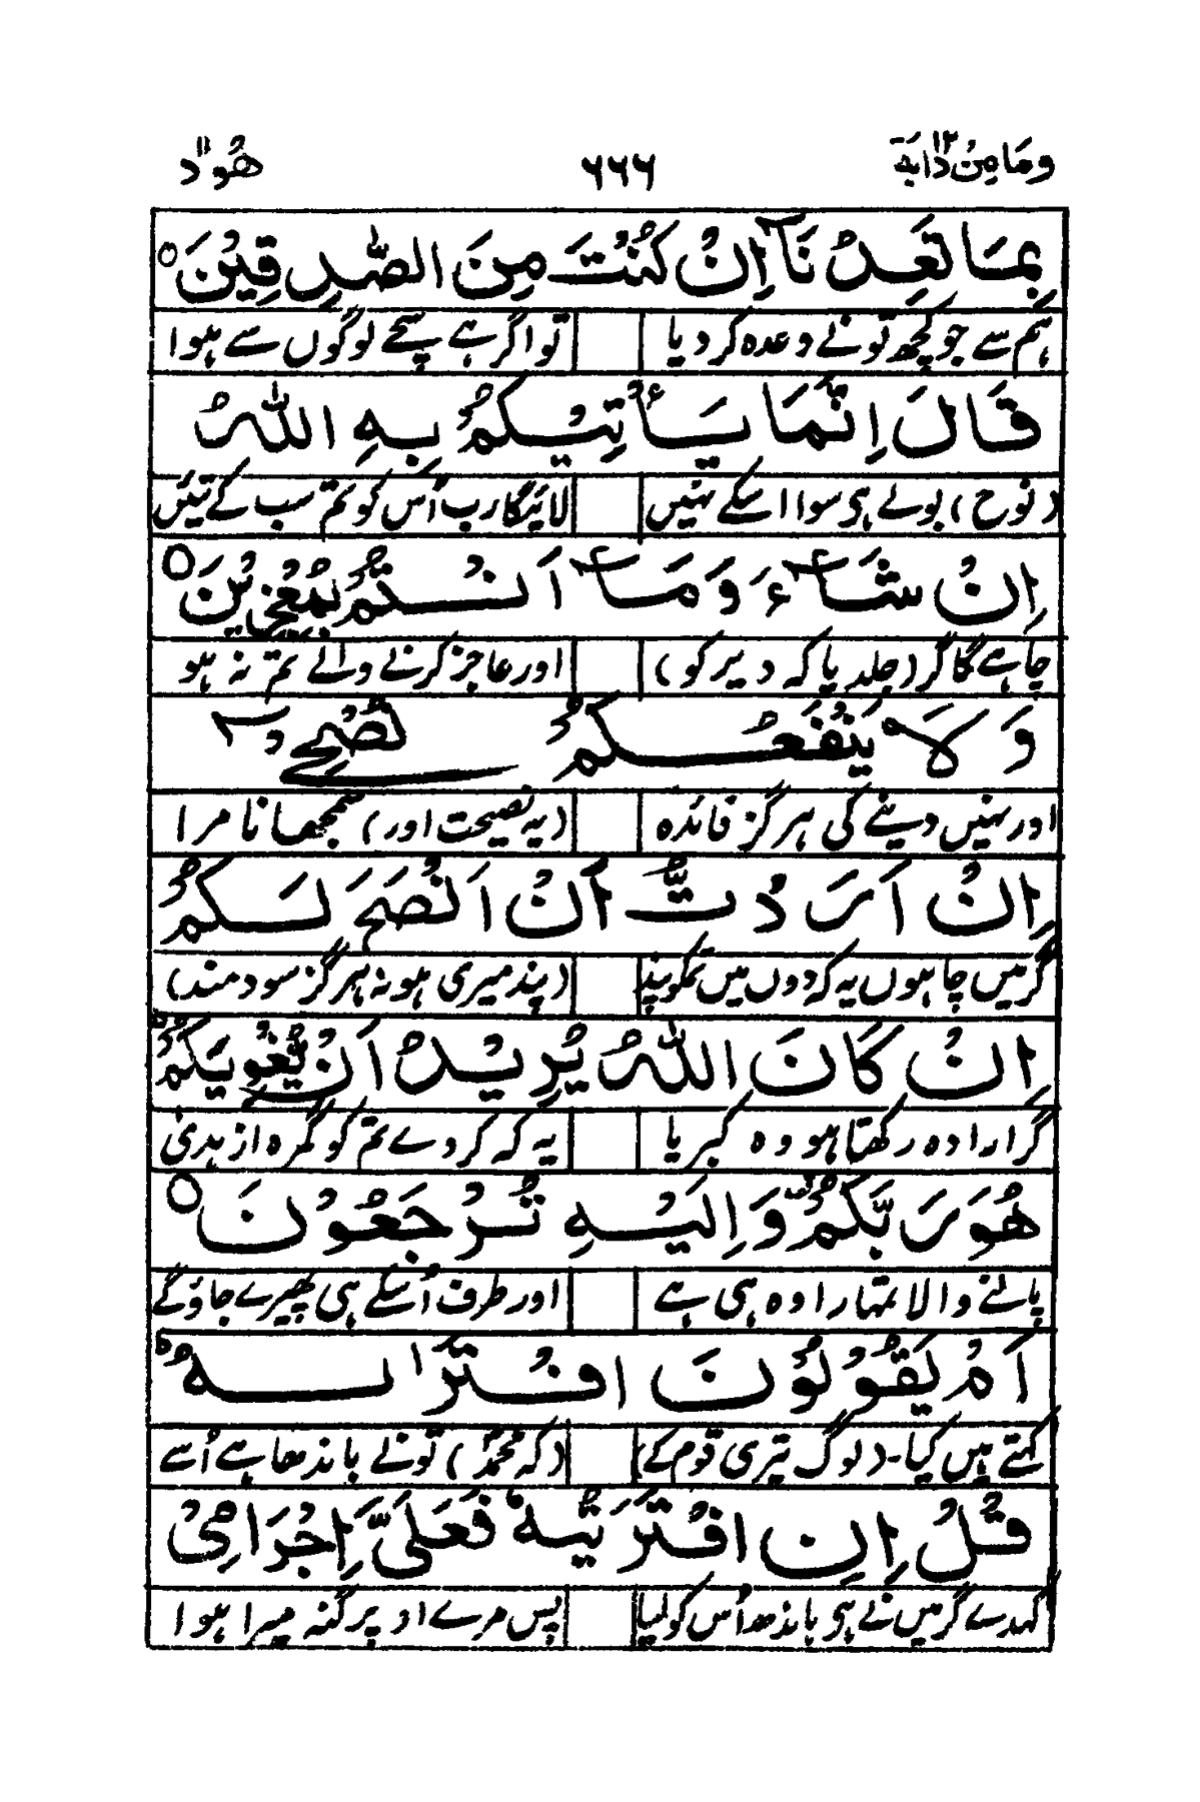 وما من دابة ١٢ ٦٦٦ هود ١١
بِمَا تَعِدُنَآ اِنْ كُنْتَ مِنَ الصّٰدِقِيْنَ ○
ہم سے جو کچھ تونے وعدہ کر دیا تو اگر ہے سچے لوگوں سے ہوا
قَالَ اِنَّمَا يَاْتِيْكُمْ بِهِ اللّٰهُ
(نوح) بولے ہی سوا اسکے نہیں لائیگا رب اُس کو تم سب کے تئیں
اِنْ شَآءَ وَمَآ اَنْتُمْ بِمُعْجِزِيْنَ ○
چاہے گا گر (جلد یا کہ دیر کو) اور عاجز کرنے والے تم نہ ہو
وَلَا يَنْفَعُكُمْ نُصْحِيْٓ
اور نہیں دینے کی ہرگز فائدہ (یہ نصیحت اور) سمجھانا مرا
اِنْ اَرَدْتُّ اَنْ اَنْصَحَ لَكُمْ
گر میں چاہوں یہ کہ دوں میں تمکو پند (پند میری ہو نہ ہرگز سود مند)
اِنْ كَانَ اللّٰهُ يُرِيْدُ اَنْ يُّغْوِيَكُمْ ؕ
گر ارادہ رکھتا ہو وہ کبریا یہ کہ کر دے تم کو گمرہ از ہدیٰ
هُوَ رَبُّكُمْ ۫ وَاِلَيْهِ تُرْجَعُوْنَ ○
پالنے والا تمہارا وہ ہی ہے اور طرف اُسکے ہی پھیرے جاؤگے
اَمْ يَقُوْلُوْنَ افْتَرٰىهُ ؕ
کہتے ہیں کیا۔ (لوگ تیری قوم کے) (کہ محمدؐ) تونے باندھا ہے اُسے
قُلْ اِنِ افْتَرَيْتُهٗ فَعَلَيَّ اِجْرَامِيْ
کہدے گر میں نے ہی باندھ اُس کو لیا پس مرے اوپر گنہ میرا ہوا